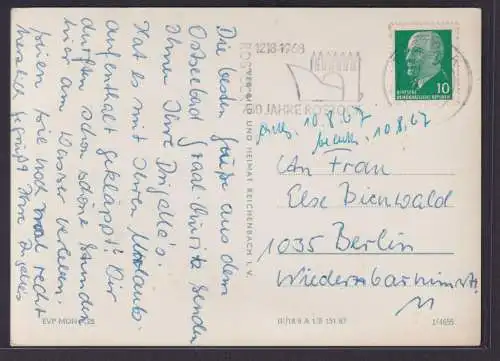 Die besten Grüße aus dem
Ostseebad Graal-Müritz senden
Ihnen Ihre Drijalla's.
Hat es mit Ihren Urlaubs-
aufenthalt geklappt? Wir
durften schon schöne Stunden
hier am Wasser verleben.
Seien Sie noch mal recht
herzlich gegrüßt Ihre
VEB BILD UND HEIMAT REICHENBACH I. V.
1218-1968
ROSTOCK
750 JAHRE ROSTOCK
DEUTSCHE
DEMOKRATISCHE REPUBLIK
10
10.8.67
10.8.67
An Frau
Else Bienwald
1035 Berlin
Wiedenbarnimstr.
11
EVP MDN 0,25
III/18/6 A 1/B 151 67
1/4655